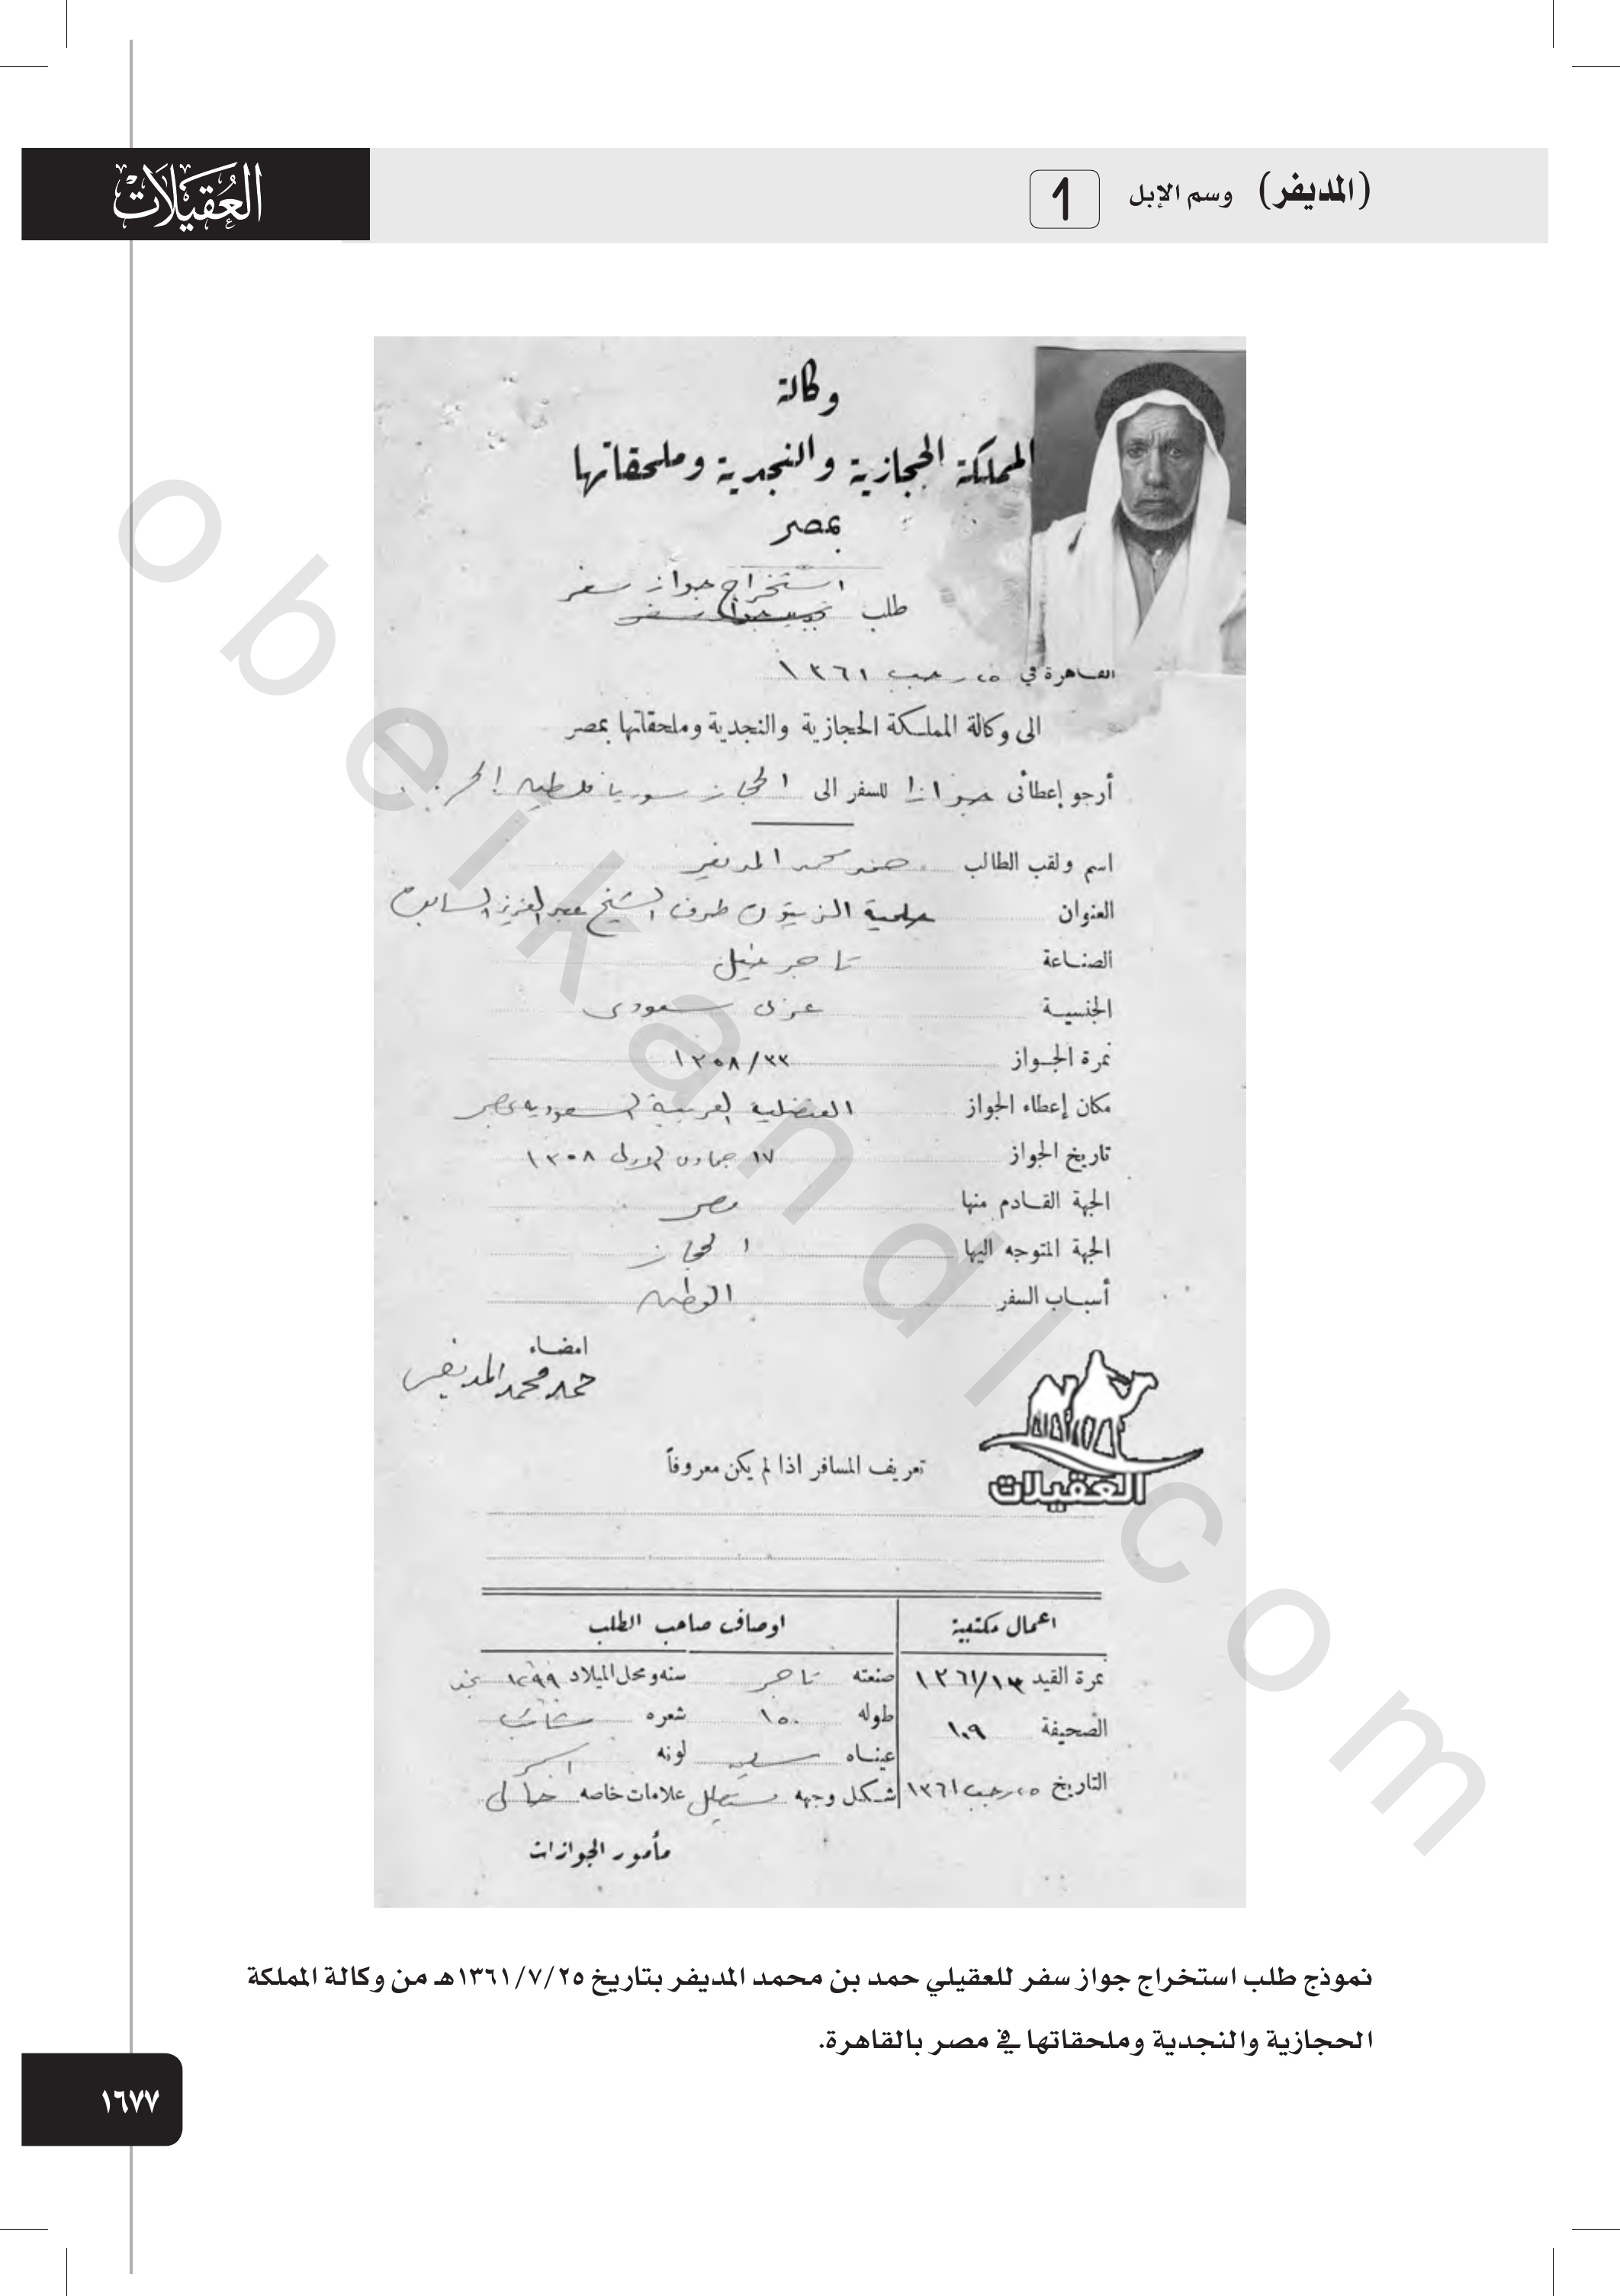 العقيلات
(المديفر) وسم الإبل
وكالة
المملكة الحجازية والنجدية وملحقاتها
بمصر
استخراج جواز سفر
طلب
القاهرة في ٢٥ رجب ١٣٦١
الى وكالة المملكة الحجازية والنجدية وملحقاتها بمصر
أرجو إعطائى جوازا للسفر الى الحجاز سوريا فلسطين
اسم ولقب الطالب حمد محمد المديفر
العنوان حلمية الزيتون طرف الشيخ عبد العزيز
الصناعة تاجر خيل
الجنسية عربى سعودى
نمرة الجواز ١٣٥٨/٣٣
مكان إعطاء الجواز القنصلية العربية السعودية بمصر
تاريخ الجواز ١٧ جمادى الاولى ١٣٥٨
الجهة القادم منها مصر
الجهة المتوجه اليها الحجاز
أسباب السفر الوطن
امضاء
حمد محمد المديفر
العقيلات
تعريف المسافر اذا لم يكن معروفاً
اعمال مكتبية
اوصاف صاحب الطلب
نمرة القيد ١٣٦١/١٣
صنعته تاجر سنه ومحل الميلاد ١٢٩٩ نجد
الصحيفة ١٠٩
طوله ١٥٠ شعره شائب
عيناه لونه اسمر
التاريخ ٢٥ رجب ١٣٦١
شكل وجهه مستطيل علامات خاصه خالى
مأمور الجوازات
نموذج طلب استخراج جواز سفر للعقيلي حمد بن محمد المديفر بتاريخ ١٣٦١/٧/٢٥هـ من وكالة المملكة
الحجازية والنجدية وملحقاتها في مصر بالقاهرة.
١٦٧٧
obeikandl.com